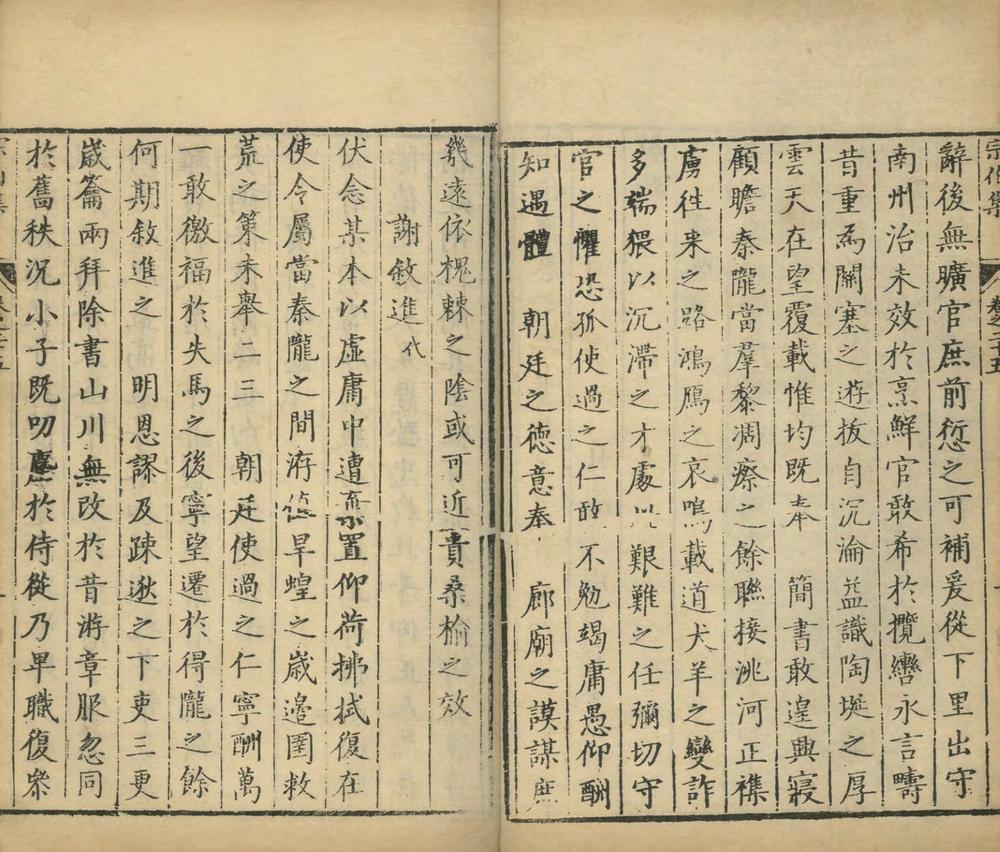 宗伯集
卷之二十五
辭後無曠官庶前愆之可補爰從下里出守
南州治未效於烹鮮官敢希於攬轡永言疇
昔重爲關塞之遊拔自沉淪益識陶埏之厚
雲天在望覆載惟均既奉 簡書敢遑興寢
顧瞻秦隴當羣黎凋瘵之餘聯接洮河正襍
虜徃来之路鴻鴈之哀鳴載道犬羊之變詐
多端猥以沉滯之才處以艱難之任彌切守
官之懼恐孤使過之仁敢不勉竭庸愚仰酬
知遇體 朝廷之德意奉 廊廟之謨謀庶
幾遠依槐棘之陰或可近責桑榆之效
謝敘進代
伏念某本以虛庸中遭棄置仰荷拂拭復在
使令屬當秦隴之間洊值旱蝗之歲邊圉救
荒之策未舉二三 朝廷使過之仁寧酬萬
一敢徼福於失馬之後寧望遷於得隴之餘
何期敘進之 明恩謬及疎逖之下吏三更
歲籥兩拜除書山川無改於昔游章服忽同
於舊秩况小子既叨塵於侍從乃早職復叅